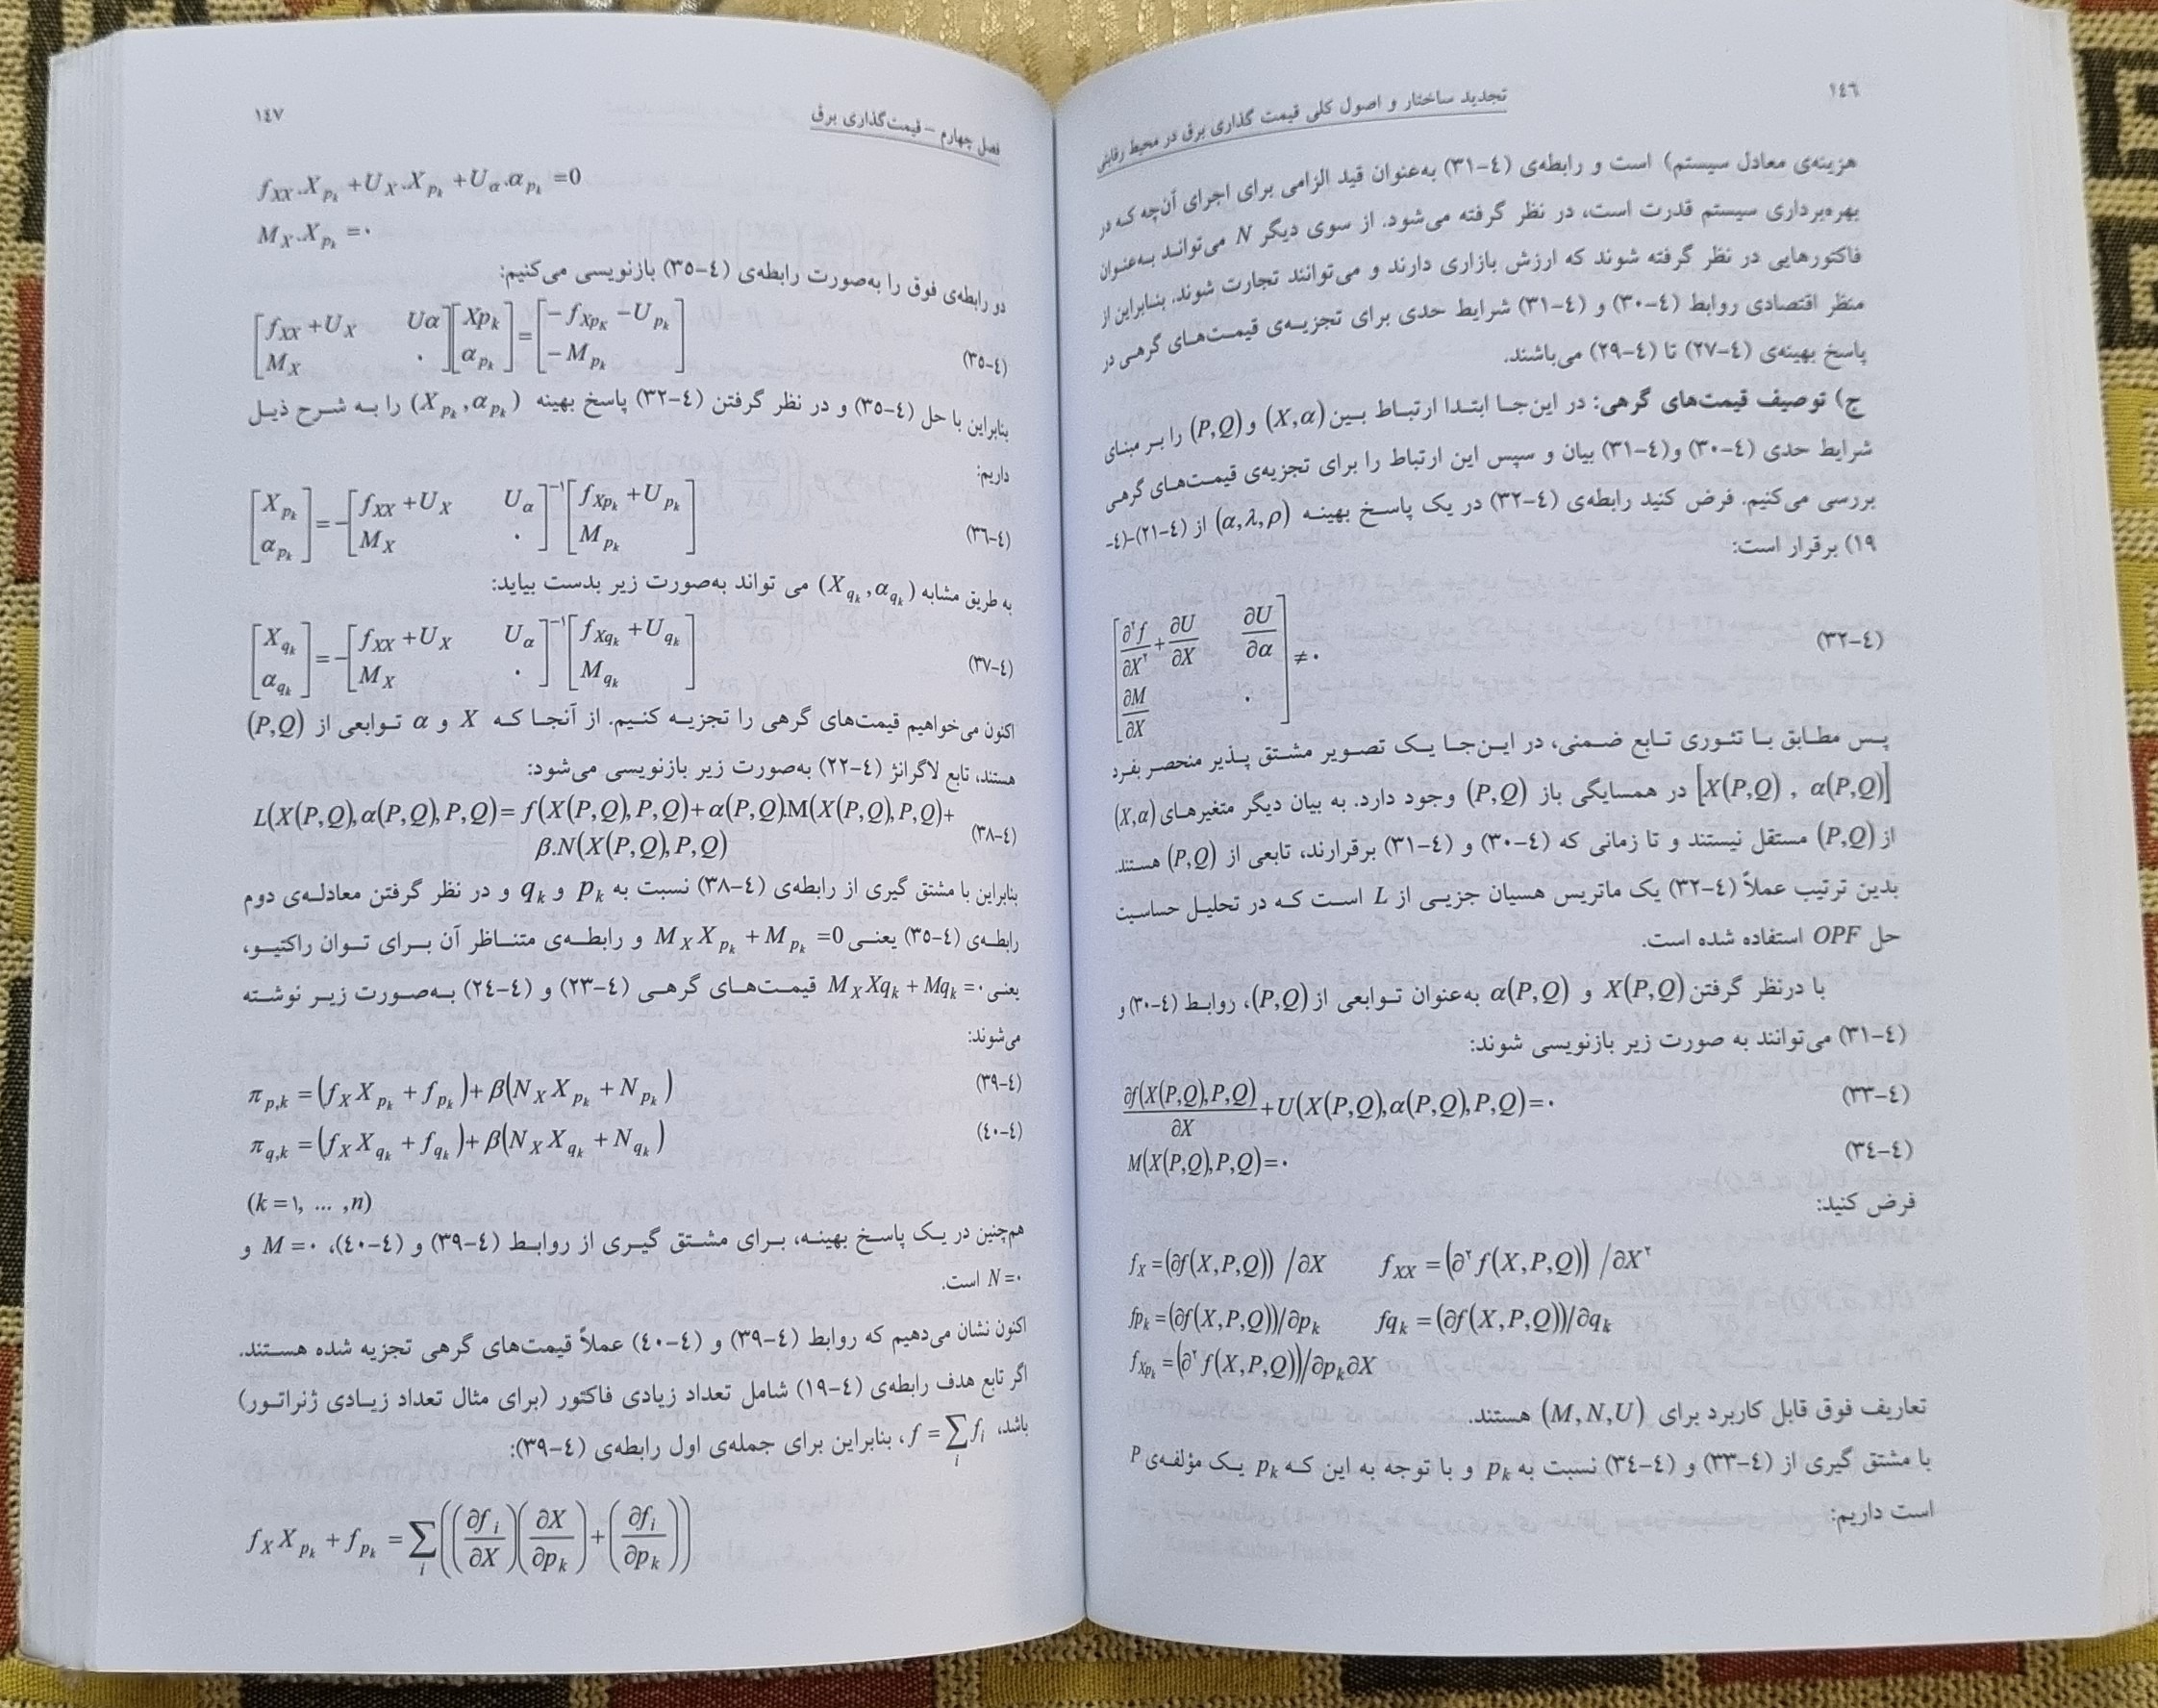 ١٤٦
تجدید ساختار و اصول کلی قیمت گذاری برق در محیط رقابتی
هزینه‌ی معادل سیستم) است و رابطه‌ی (٤-٣١) به‌عنوان قید الزامی برای اجرای آن‌چه که در
بهره‌برداری سیستم قدرت است، در نظر گرفته می‌شود. از سوی دیگر N می‌تواند به‌عنوان
فاکتورهایی در نظر گرفته شوند که ارزش بازاری دارند و می‌توانند تجارت شوند. بنابراین از
منظر اقتصادی روابط (٤-٣٠) و (٤-٣١) شرایط حدی برای تجزیه‌ی قیمت‌های گرهی در
پاسخ بهینه‌ی (٤-٢٧) تا (٤-٢٩) می‌باشند.
ج) توصیف قیمت‌های گرهی: در این‌جا ابتدا ارتباط بین (X,α) و (P,Q) را بر مبنای
شرایط حدی (٤-٣٠) و(٤-٣١) بیان و سپس این ارتباط را برای تجزیه‌ی قیمت‌های گرهی
بررسی می‌کنیم. فرض کنید رابطه‌ی (٤-٣٢) در یک پاسخ بهینه (α,λ,ρ) از (٤-٢١)-(٤-
١٩) برقرار است:
[∂²f/∂X² + ∂U/∂X   ∂U/∂α ; ∂M/∂X   ٠] ≠ ٠   (٤-٣٢)
پس مطابق با تئوری تابع ضمنی، در این‌جا یک تصویر مشتق پذیر منحصر بفرد
[X(P,Q) , α(P,Q)] در همسایگی باز (P,Q) وجود دارد. به بیان دیگر متغیرهای (X,α)
از (P,Q) مستقل نیستند و تا زمانی که (٤-٣٠) و (٤-٣١) برقرارند، تابعی از (P,Q) هستند.
بدین ترتیب عملاً (٤-٣٢) یک ماتریس هسیان جزیی از L است که در تحلیل حساسیت
حل OPF استفاده شده است.
با درنظر گرفتن X(P,Q) و α(P,Q) به‌عنوان توابعی از (P,Q)، روابط (٤-٣٠) و
(٤-٣١) می‌توانند به صورت زیر بازنویسی شوند:
∂f(X(P,Q),P,Q)/∂X + U(X(P,Q),α(P,Q),P,Q) = ٠   (٤-٣٣)
M(X(P,Q),P,Q) = ٠   (٤-٣٤)
فرض کنید:
f_X = (∂f(X,P,Q)) /∂X   f_XX = (∂²f(X,P,Q)) /∂X²
fp_k = (∂f(X,P,Q))/∂p_k   fq_k = (∂f(X,P,Q))/∂q_k
f_Xp_k = (∂²f(X,P,Q))/∂p_k∂X
تعاریف فوق قابل کاربرد برای (M,N,U) هستند.
با مشتق گیری از (٤-٣٣) و (٤-٣٤) نسبت به p_k و با توجه به این که p_k یک مؤلفه‌ی P
است داریم:
فصل چهارم – قیمت‌گذاری برق
١٤٧
f_XX.X_p_k + U_X.X_p_k + U_α.α_p_k = 0
M_X.X_p_k = ٠
دو رابطه‌ی فوق را به‌صورت رابطه‌ی (٤-٣٥) بازنویسی می‌کنیم:
[f_XX + U_X   Uα ; M_X   ٠][Xp_k ; α_p_k] = [− f_Xp_K − U_p_k ; − M_p_k]   (٤-٣٥)
بنابراین با حل (٤-٣٥) و در نظر گرفتن (٤-٣٢) پاسخ بهینه (X_p_k, α_p_k) را به شرح ذیل
داریم:
[X_p_k ; α_p_k] = −[f_XX + U_X   U_α ; M_X   ٠]^−١ [f_Xp_k + U_p_k ; M_p_k]   (٤-٣٦)
به طریق مشابه (X_q_k, α_q_k) می تواند به‌صورت زیر بدست بیاید:
[X_q_k ; α_q_k] = −[f_XX + U_X   U_α ; M_X   ٠]^−١ [f_Xq_k + U_q_k ; M_q_k]   (٤-٣٧)
اکنون می‌خواهیم قیمت‌های گرهی را تجزیه کنیم. از آنجا که X و α توابعی از (P,Q)
هستند، تابع لاگرانژ (٤-٢٢) به‌صورت زیر بازنویسی می‌شود:
L(X(P,Q),α(P,Q),P,Q) = f(X(P,Q),P,Q) + α(P,Q).M(X(P,Q),P,Q)+   (٤-٣٨)
β.N(X(P,Q),P,Q)
بنابراین با مشتق گیری از رابطه‌ی (٤-٣٨) نسبت به p_k و q_k و در نظر گرفتن معادله‌ی دوم
رابطه‌ی (٤-٣٥) یعنی M_X X_p_k + M_p_k = 0 و رابطه‌ی متناظر آن برای توان راکتیو،
یعنی M_X Xq_k + Mq_k = ٠ قیمت‌های گرهی (٤-٢٣) و (٤-٢٤) به‌صورت زیر نوشته
می‌شوند:
π_p,k = (f_X X_p_k + f_p_k) + β(N_X X_p_k + N_p_k)   (٤-٣٩)
π_q,k = (f_X X_q_k + f_q_k) + β(N_X X_q_k + N_q_k)   (٤-٤٠)
(k = ١, ... ,n)
هم‌چنین در یک پاسخ بهینه، برای مشتق گیری از روابط (٤-٣٩) و (٤-٤٠)، M = ٠ و
N = ٠ است.
اکنون نشان می‌دهیم که روابط (٤-٣٩) و (٤-٤٠) عملاً قیمت‌های گرهی تجزیه شده هستند.
اگر تابع هدف رابطه‌ی (٤-١٩) شامل تعداد زیادی فاکتور (برای مثال تعداد زیادی ژنراتور)
باشد، f = ∑_i f_i، بنابراین برای جمله‌ی اول رابطه‌ی (٤-٣٩):
f_X X_p_k + f_p_k = ∑_i ((∂f_i/∂X)(∂X/∂p_k) + (∂f_i/∂p_k))